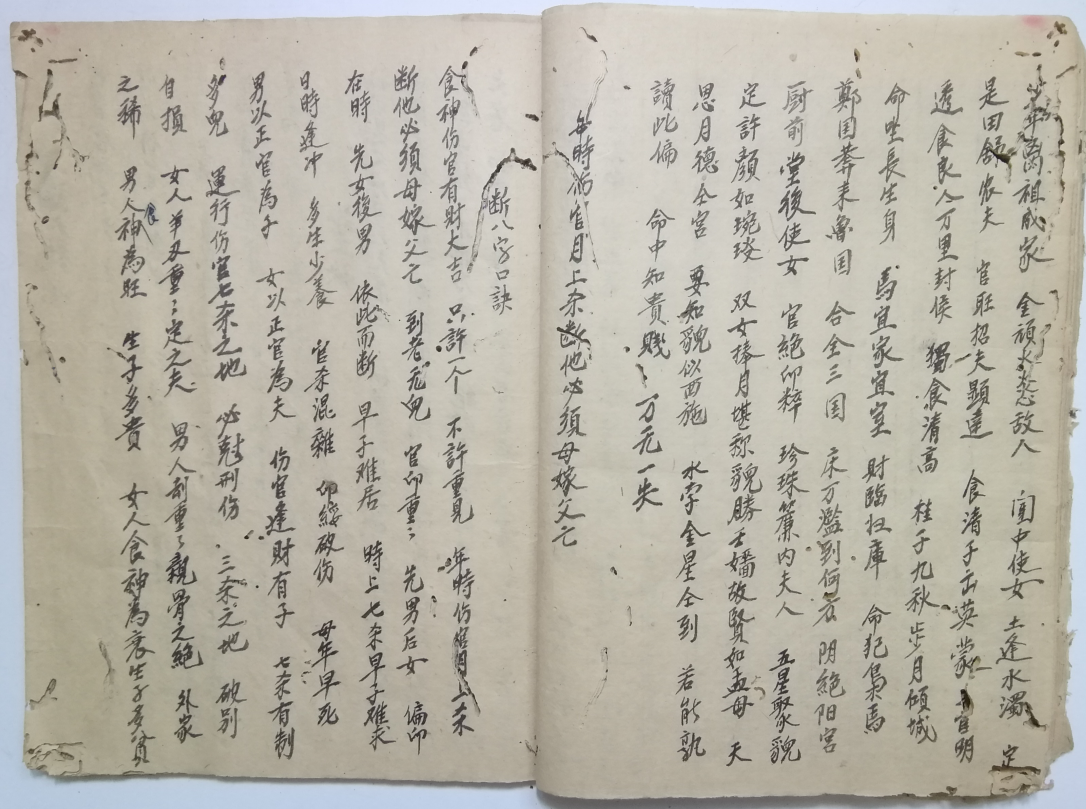 少年离祖成家 金顽水愁敌人 闺中使女 土逢水濁 定
是田舒农夫 官旺招夫顯達 食清子出英 官明
透食良人万里封侯 獨食清高 桂子九秋步月傾城
命坐長生身 馬宜家宜室 財臨扫庫 命犯梟馬
鄭国葬来魯国 合全三国 床万濫到何 阴絕阳宫
厨前堂後使女 官絕印粹 珍珠簾内夫人 五星聚貌
定許顔如琬琰 双女捧月堪称貌勝士嬙故賢如孟母 天
思月德仝宫 要知貌似西施 水字金星仝到 若能熟
讀此偏 命中知貴賤 一万元一失
年時伤官月上杀断他必須母嫁父亡
断八字口訣
食神伤官有財大吉 只許一个 不許重見 年時伤官月上杀
断他必須母嫁父亡 到老无兒 官印重々 先男后女 偏印
在時 先女後男 依此而断 早子难居 時上七杀早子难
日時逢冲 多生少養 官杀混雜 印綬破伤 母年早死
男以正官為子 女以正官為夫 伤官逢財有子 七杀有制
多兒 運行伤官七杀之地 必尅刑伤 三杀之地 破别
自損 女人羊刃重々定之夫 男人刦重々親骨之絕 外家
之稀 男人食神為旺 生子多貴 女人食神為衰生子多貧